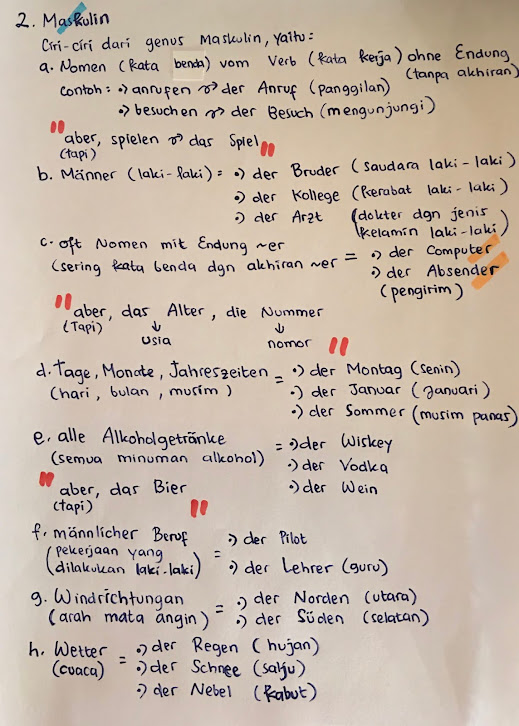 2. Maskulin
Ciri-ciri dari genus Maskulin, yaitu:
a. Nomen (kata benda) vom Verb (kata kerja) ohne Endung
(tanpa akhiran)
contoh: •) anrufen → der Anruf (panggilan)
•) besuchen → der Besuch (mengunjungi)
"aber, spielen → das Spiel"
(tapi)
b. Männer (laki-laki) = •) der Bruder (saudara laki-laki)
•) der Kollege (kerabat laki-laki)
•) der Arzt (dokter dgn jenis
kelamin laki-laki)
c. oft Nomen mit Endung ~er = •) der Computer
(sering kata benda dgn akhiran ~er •) der Absender
(pengirim)
"aber, das Alter, die Nummer
(Tapi) ↓ ↓
usia nomor "
d. Tage, Monate, Jahreszeiten = •) der Montag (senin)
(hari, bulan, musim) •) der Januar (januari)
•) der Sommer (musim panas)
e. alle Alkoholgetränke = •) der Wiskey
(semua minuman alkohol) •) der Vodka
•) der Wein
"aber, das Bier
(tapi) "
f. männlicher Beruf = •) der Pilot
(pekerjaan yang
dilakukan laki-laki) •) der Lehrer (guru)
g. Windrichtungan = •) der Norden (utara)
(arah mata angin) •) der Süden (selatan)
h. Wetter = •) der Regen (hujan)
(cuaca) •) der Schnee (salju)
•) der Nebel (kabut)